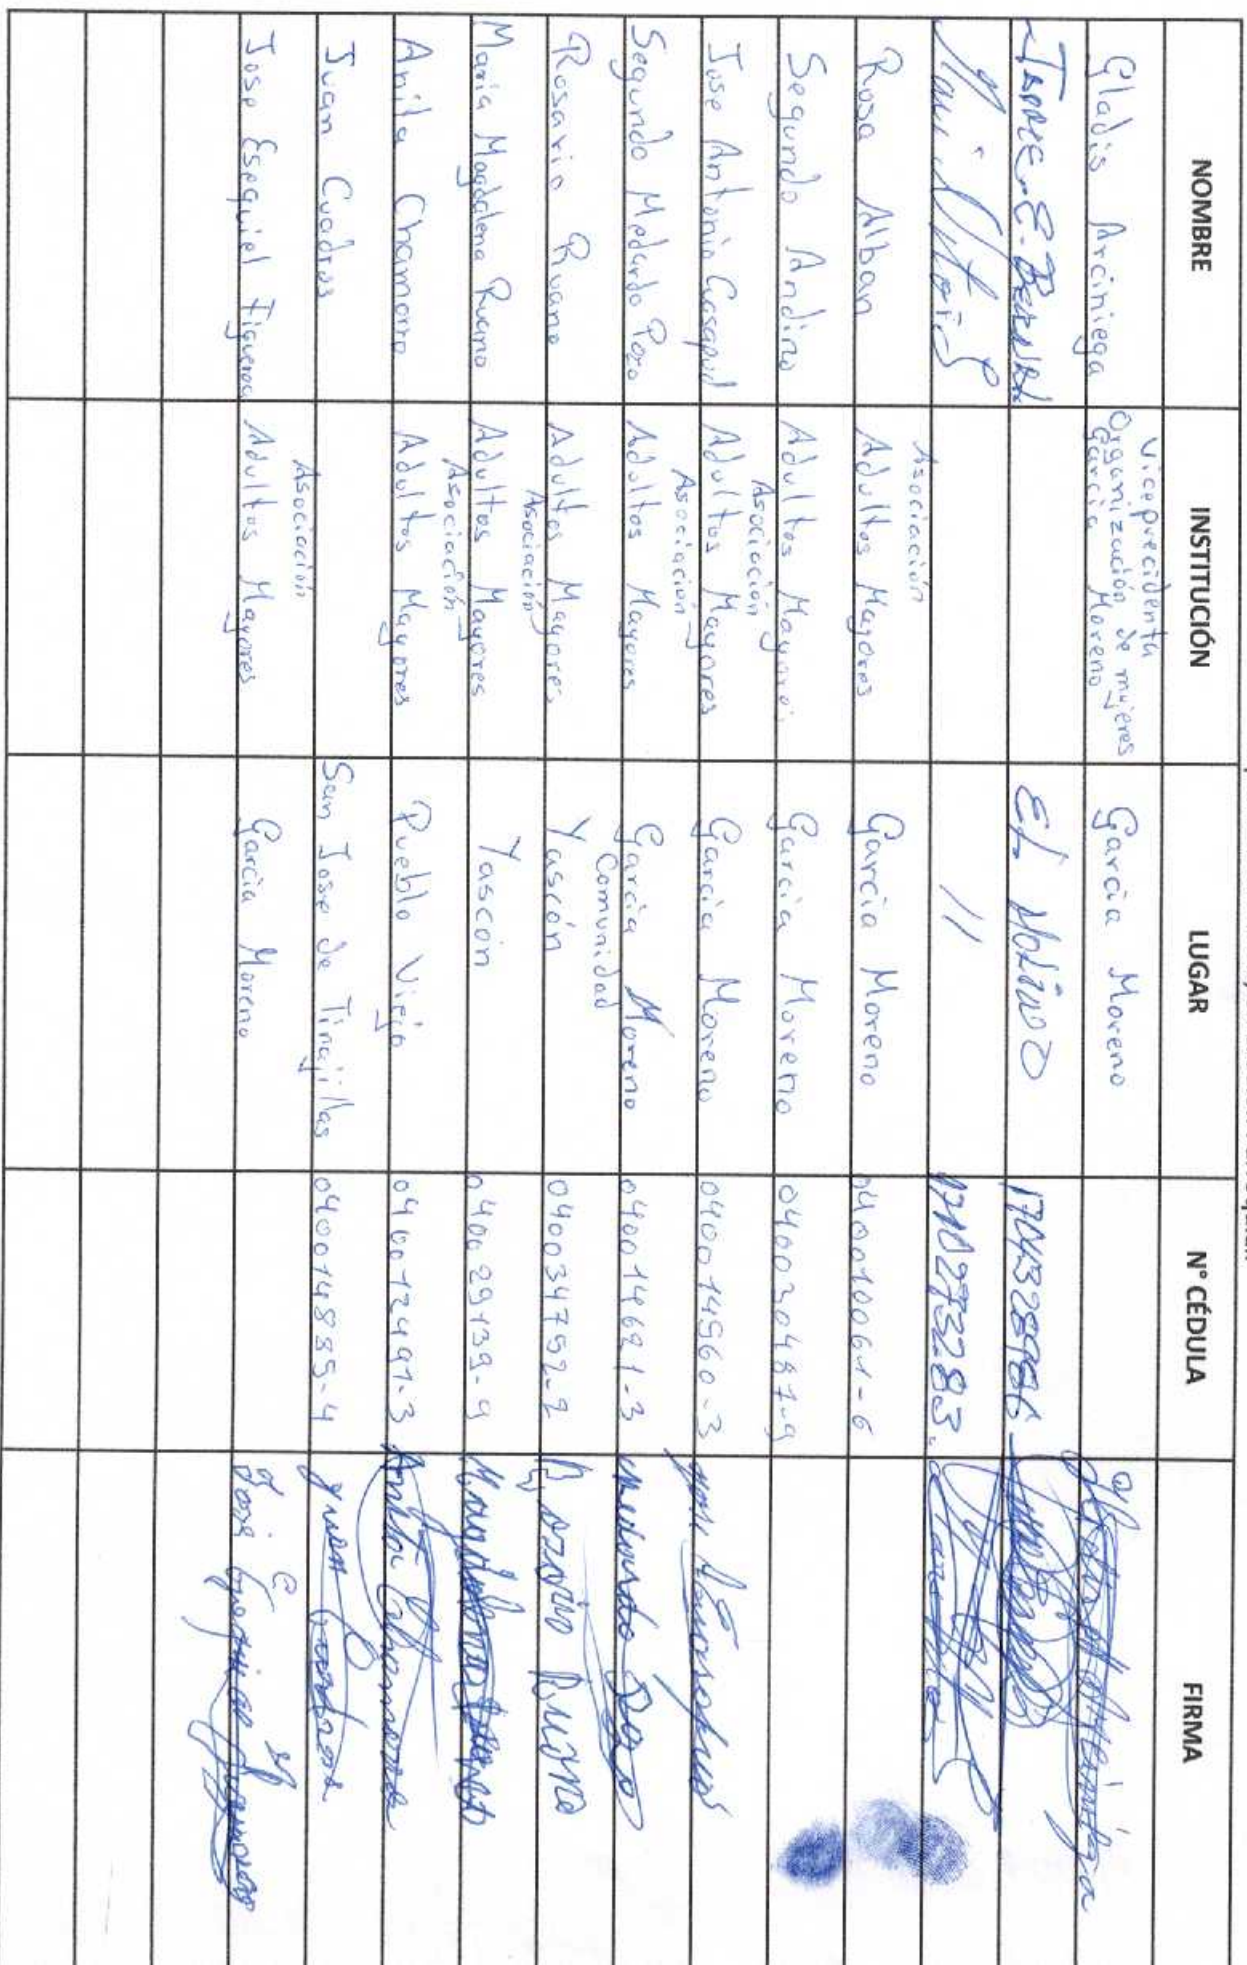 NOMBRE INSTITUCIÓN LUGAR N° CÉDULA FIRMA
Gladis Arciniega Viceprecidenta Organización de mujeres García Moreno García Moreno
JAIME.E. EL MOLINO
María 11 1710273283.
Rosa Alban Asociación Adultos Mayores García Moreno 040010061-6
Segundo Andino Adultos Mayores García Moreno
Jose Antonio Cuasapud Asociación Adultos Mayores García Moreno 040014560-3
Segundo Medardo Pozo Asociación Adultos Mayores García Moreno 040014621-3 Medardo Pozo
Rosario Ruano Adultos Mayores Comunidad Yascón 040034752-2 Rozario Ruano
María Magdalena Ruano Asociación Adultos Mayores Yascón 040029139-9
Anita Chamorro Asociación Adultos Mayores Pueblo Viejo 040012491-3 Anita Chamorro
Juan Cuadros San Jose de Tinajillas 040014885-4 Juan
Jose Esequiel Figueroa Asociación Adultos Mayores García Moreno José